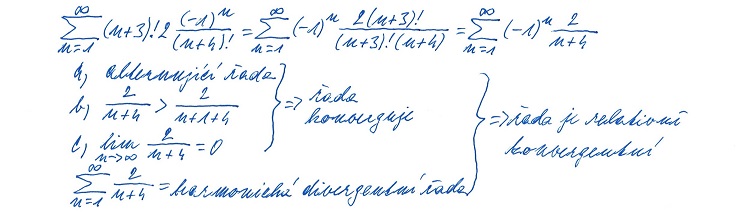 ∑_{n=1}^{∞} (n+3)! 2 (-1)^n/(n+4)! = ∑_{n=1}^{∞} (-1)^n 2(n+3)!/((n+3)!(n+4)) = ∑_{n=1}^{∞} (-1)^n 2/(n+4)
a, alternující řada
b, 2/(n+4) > 2/(n+1+4)
c, lim_{n→∞} 2/(n+4) = 0
} => řada
konverguje
∑_{n=1}^{∞} 2/(n+4) = harmonická divergentní řada
} => řada je relativně
konvergentní